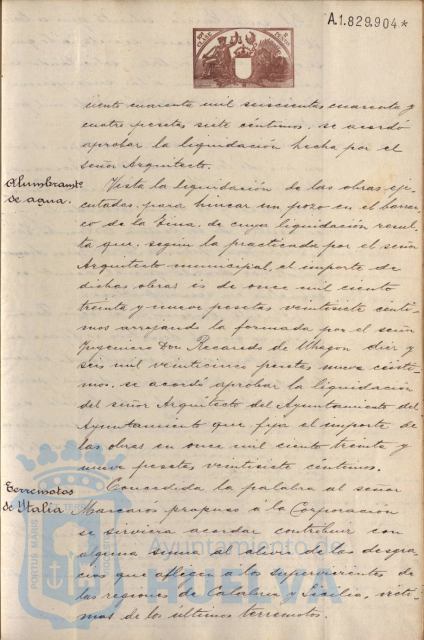 A.1.829.904*
ciento cuarenta mil seiscientas cuarenta y
cuatro pesetas siete céntimos, se acordó
aprobar la liquidación hecha por el
señor Arquitecto.
Alumbramto
de agua.
Vista la liquidación de las obras eje-
cutadas, para hincar un pozo en el barran-
co de la Fina, de cuya liquidación resul-
ta que, según la practicada por el señor
Arquitecto municipal, el importe de
dichas obras es de once mil ciento
treinta y nueve pesetas veintisiete cénti-
mos arrojando la formada por el señor
Ingeniero Don Recaredo de Uhagon diez y
seis mil veinticinco pesetas nueve cénti-
mos, se acordó aprobar la liquidación
del señor Arquitecto del Ayuntamiento del
Ayuntamiento que fija el importe de
las obras en once mil ciento treinta y
nueve pesetas veintisiete céntimos.
Terremotos
de Italia
Concedida la palabra al señor
propuso á la Corporación
se sirviera acordar contribuir con
alguna suma al alivio de las desgra-
cias que afligen á los supervivientes de
las regiones de Calabria y Sicilia, vícti-
mas de los últimos terremotos.
Ayuntamiento de
HUELVA
PORTUS MARIS